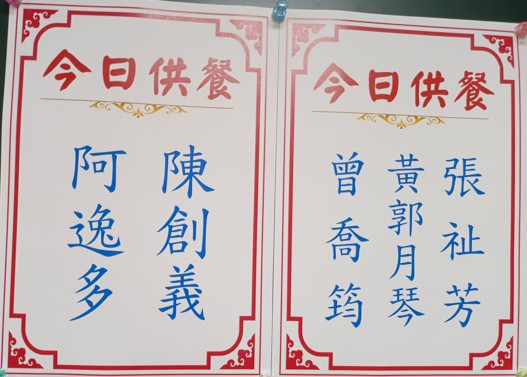 今日供餐
陳創義
阿逸多
今日供餐
張祉芳
黃郭月琴
曾喬筠